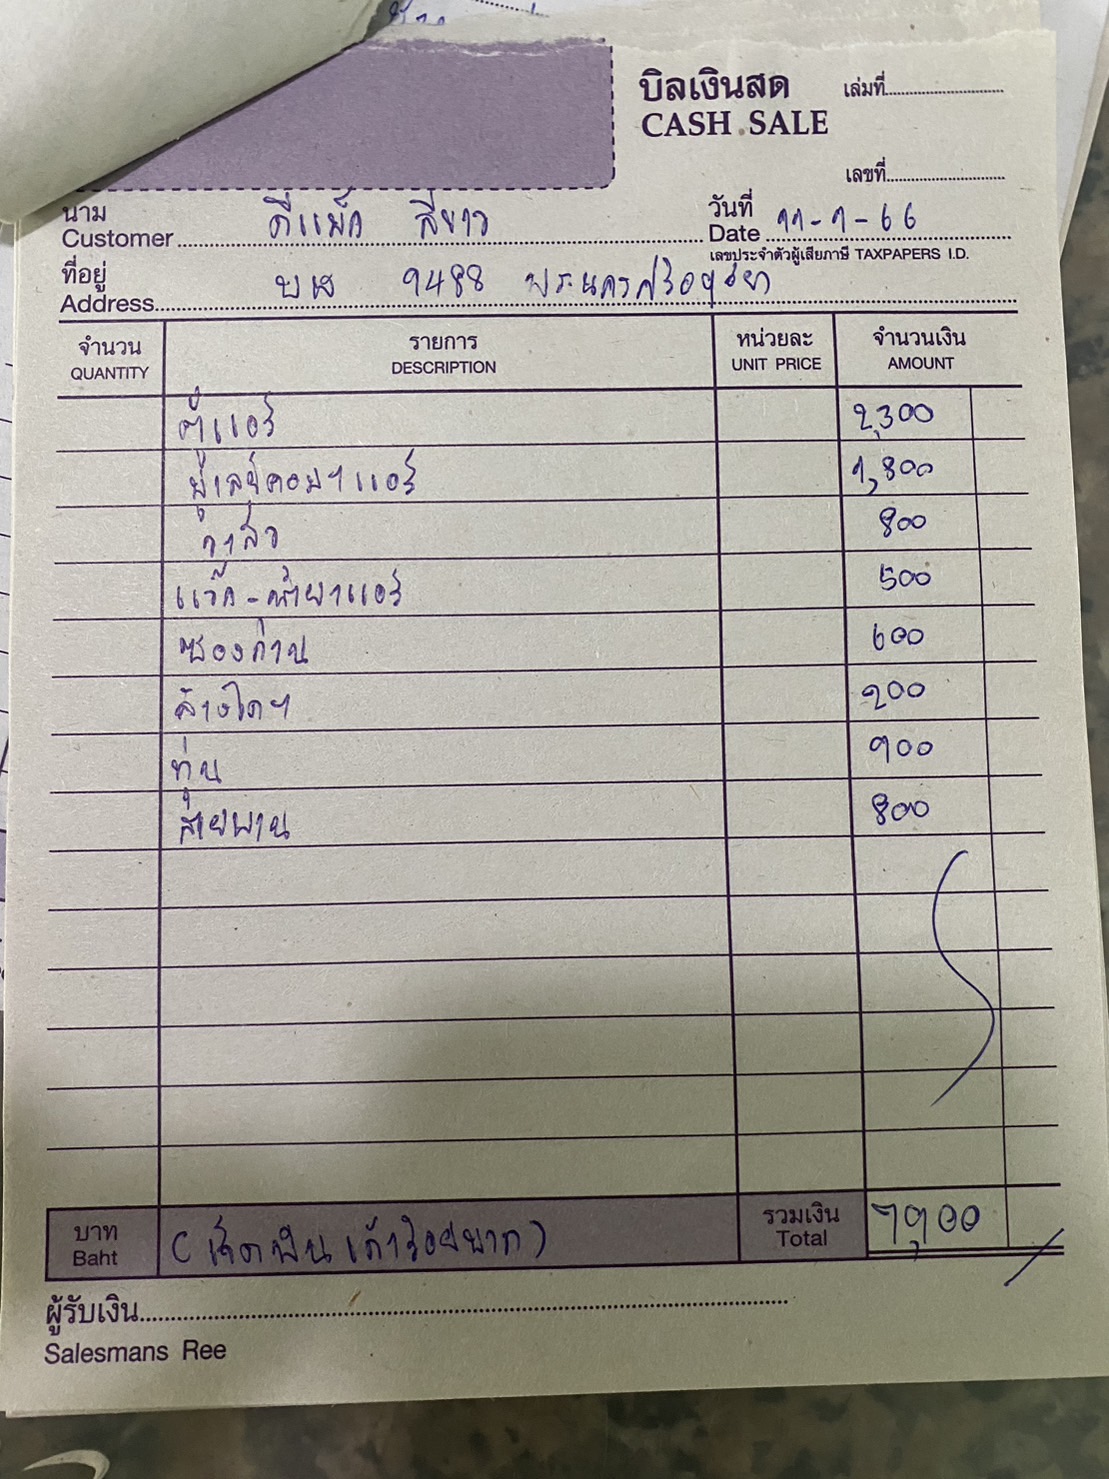 บิลเงินสด เล่มที่
CASH SALE
เลขที่
นาม ดีแม็ก สีขาว วันที่ 11-7-66
Customer Date
เลขประจำตัวผู้เสียภาษี TAXPAPERS I.D.
ที่อยู่ บษ 9488 พระนครศรีอยุธยา
Address
จำนวน รายการ หน่วยละ จำนวนเงิน
QUANTITY DESCRIPTION UNIT PRICE AMOUNT
ตู้แอร์ 2,300
มู่เลย์คอมฯแอร์ 1,800
วาล์ว 800
แว๊ก-น้ำยาแอร์ 500
ซองถ่าน 600
ล้างไดฯ 200
ทุ่น 900
สายพาน 800
บาท (เจ็ดพันเก้าร้อยบาท) รวมเงิน 7,900
Baht Total
ผู้รับเงิน
Salesmans Ree